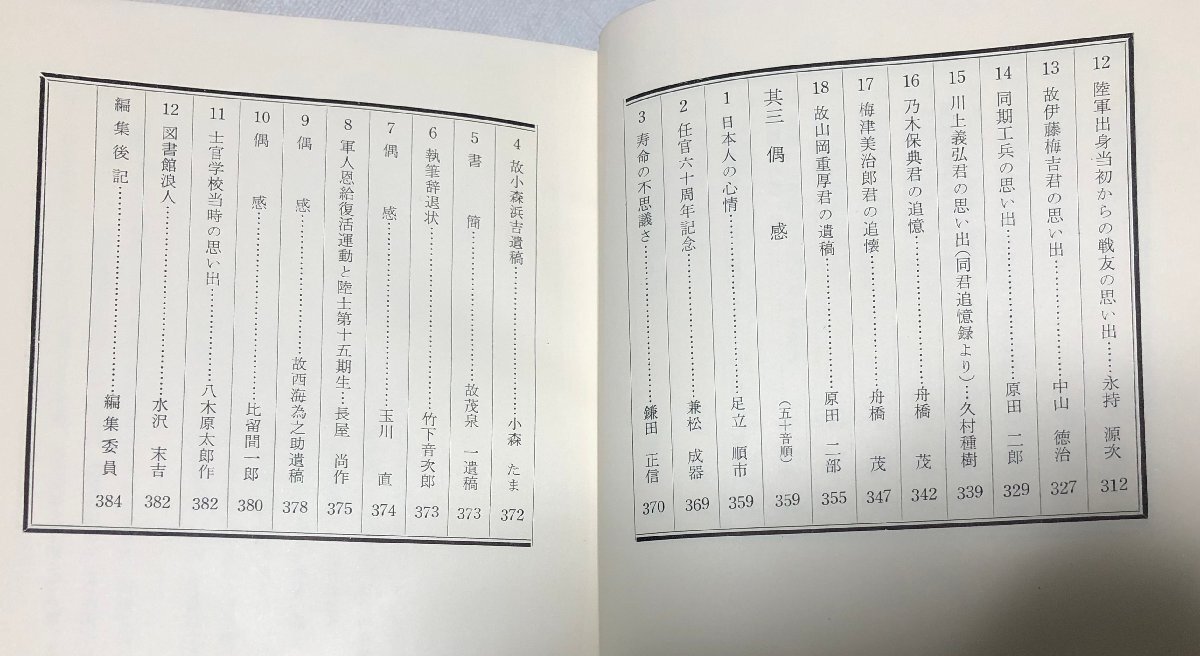 12 陸軍出身当初からの戦友の思い出……永持 源次 312
13 故伊藤梅吉君の思い出……中山 徳治 327
14 同期工兵の思い出……原田 二郎 329
15 川上義弘君の思い出(同君追憶録より)…久村種樹 339
16 乃木保典君の追憶……舟橋 茂 342
17 梅津美治郎君の追懐……舟橋 茂 347
18 故山岡重厚君の遺稿……原田 二部 355
其三 偶感 (五十音順) 359
1 日本人の心情……足立 順市 359
2 任官六十周年記念……兼松 成器 369
3 寿命の不思議さ……鎌田 正信 370
4 故小森浜吉遺稿……小森 たま 372
5 書簡……故茂泉 一遺稿 373
6 執筆辞退状……竹下音次郎 373
7 偶感……玉川 直 374
8 軍人恩給復活運動と陸士第十五期生…長屋 尚作 375
9 偶感……故西海為之助遺稿 378
10 偶感……比留間一郎 380
11 士官学校当時の思い出……八木原太郎作 382
12 図書館浪人……水沢 末吉 382
編集後記……編集委員 384